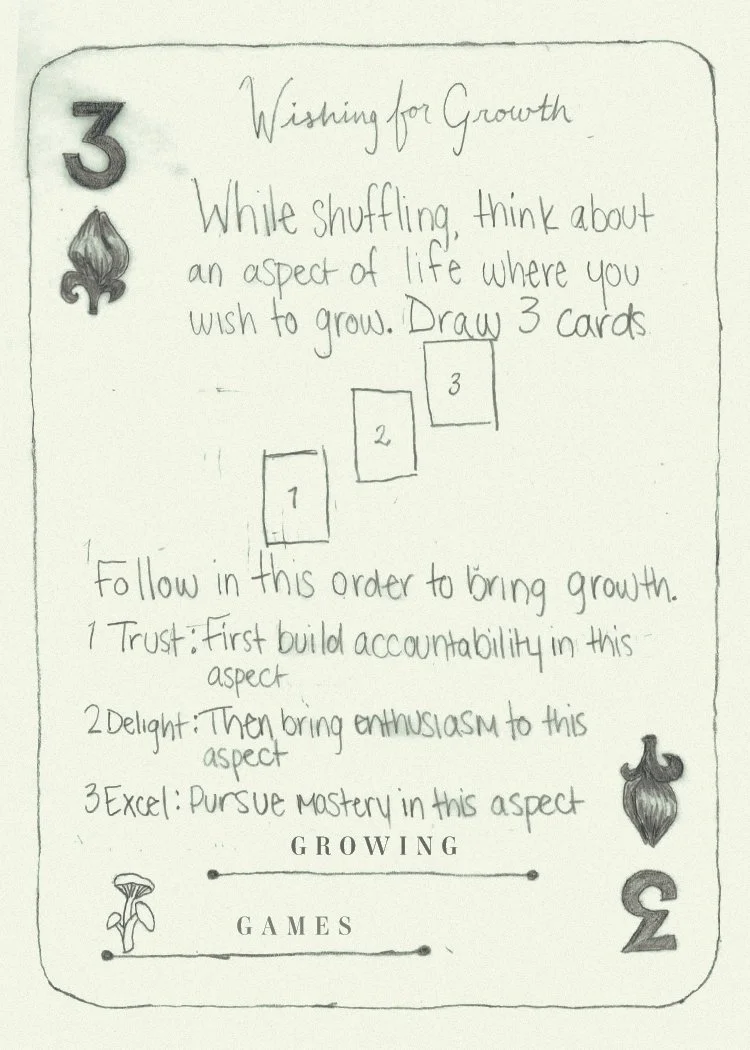 3
Wishing for Growth
While shuffling, think about
an aspect of life where you
wish to grow. Draw 3 cards
3
2
1
Follow in this order to bring growth.
1 Trust: First build accountability in this
aspect
2 Delight: Then bring enthusiasm to this
aspect
3 Excel: Pursue mastery in this aspect
GROWING
GAMES
3